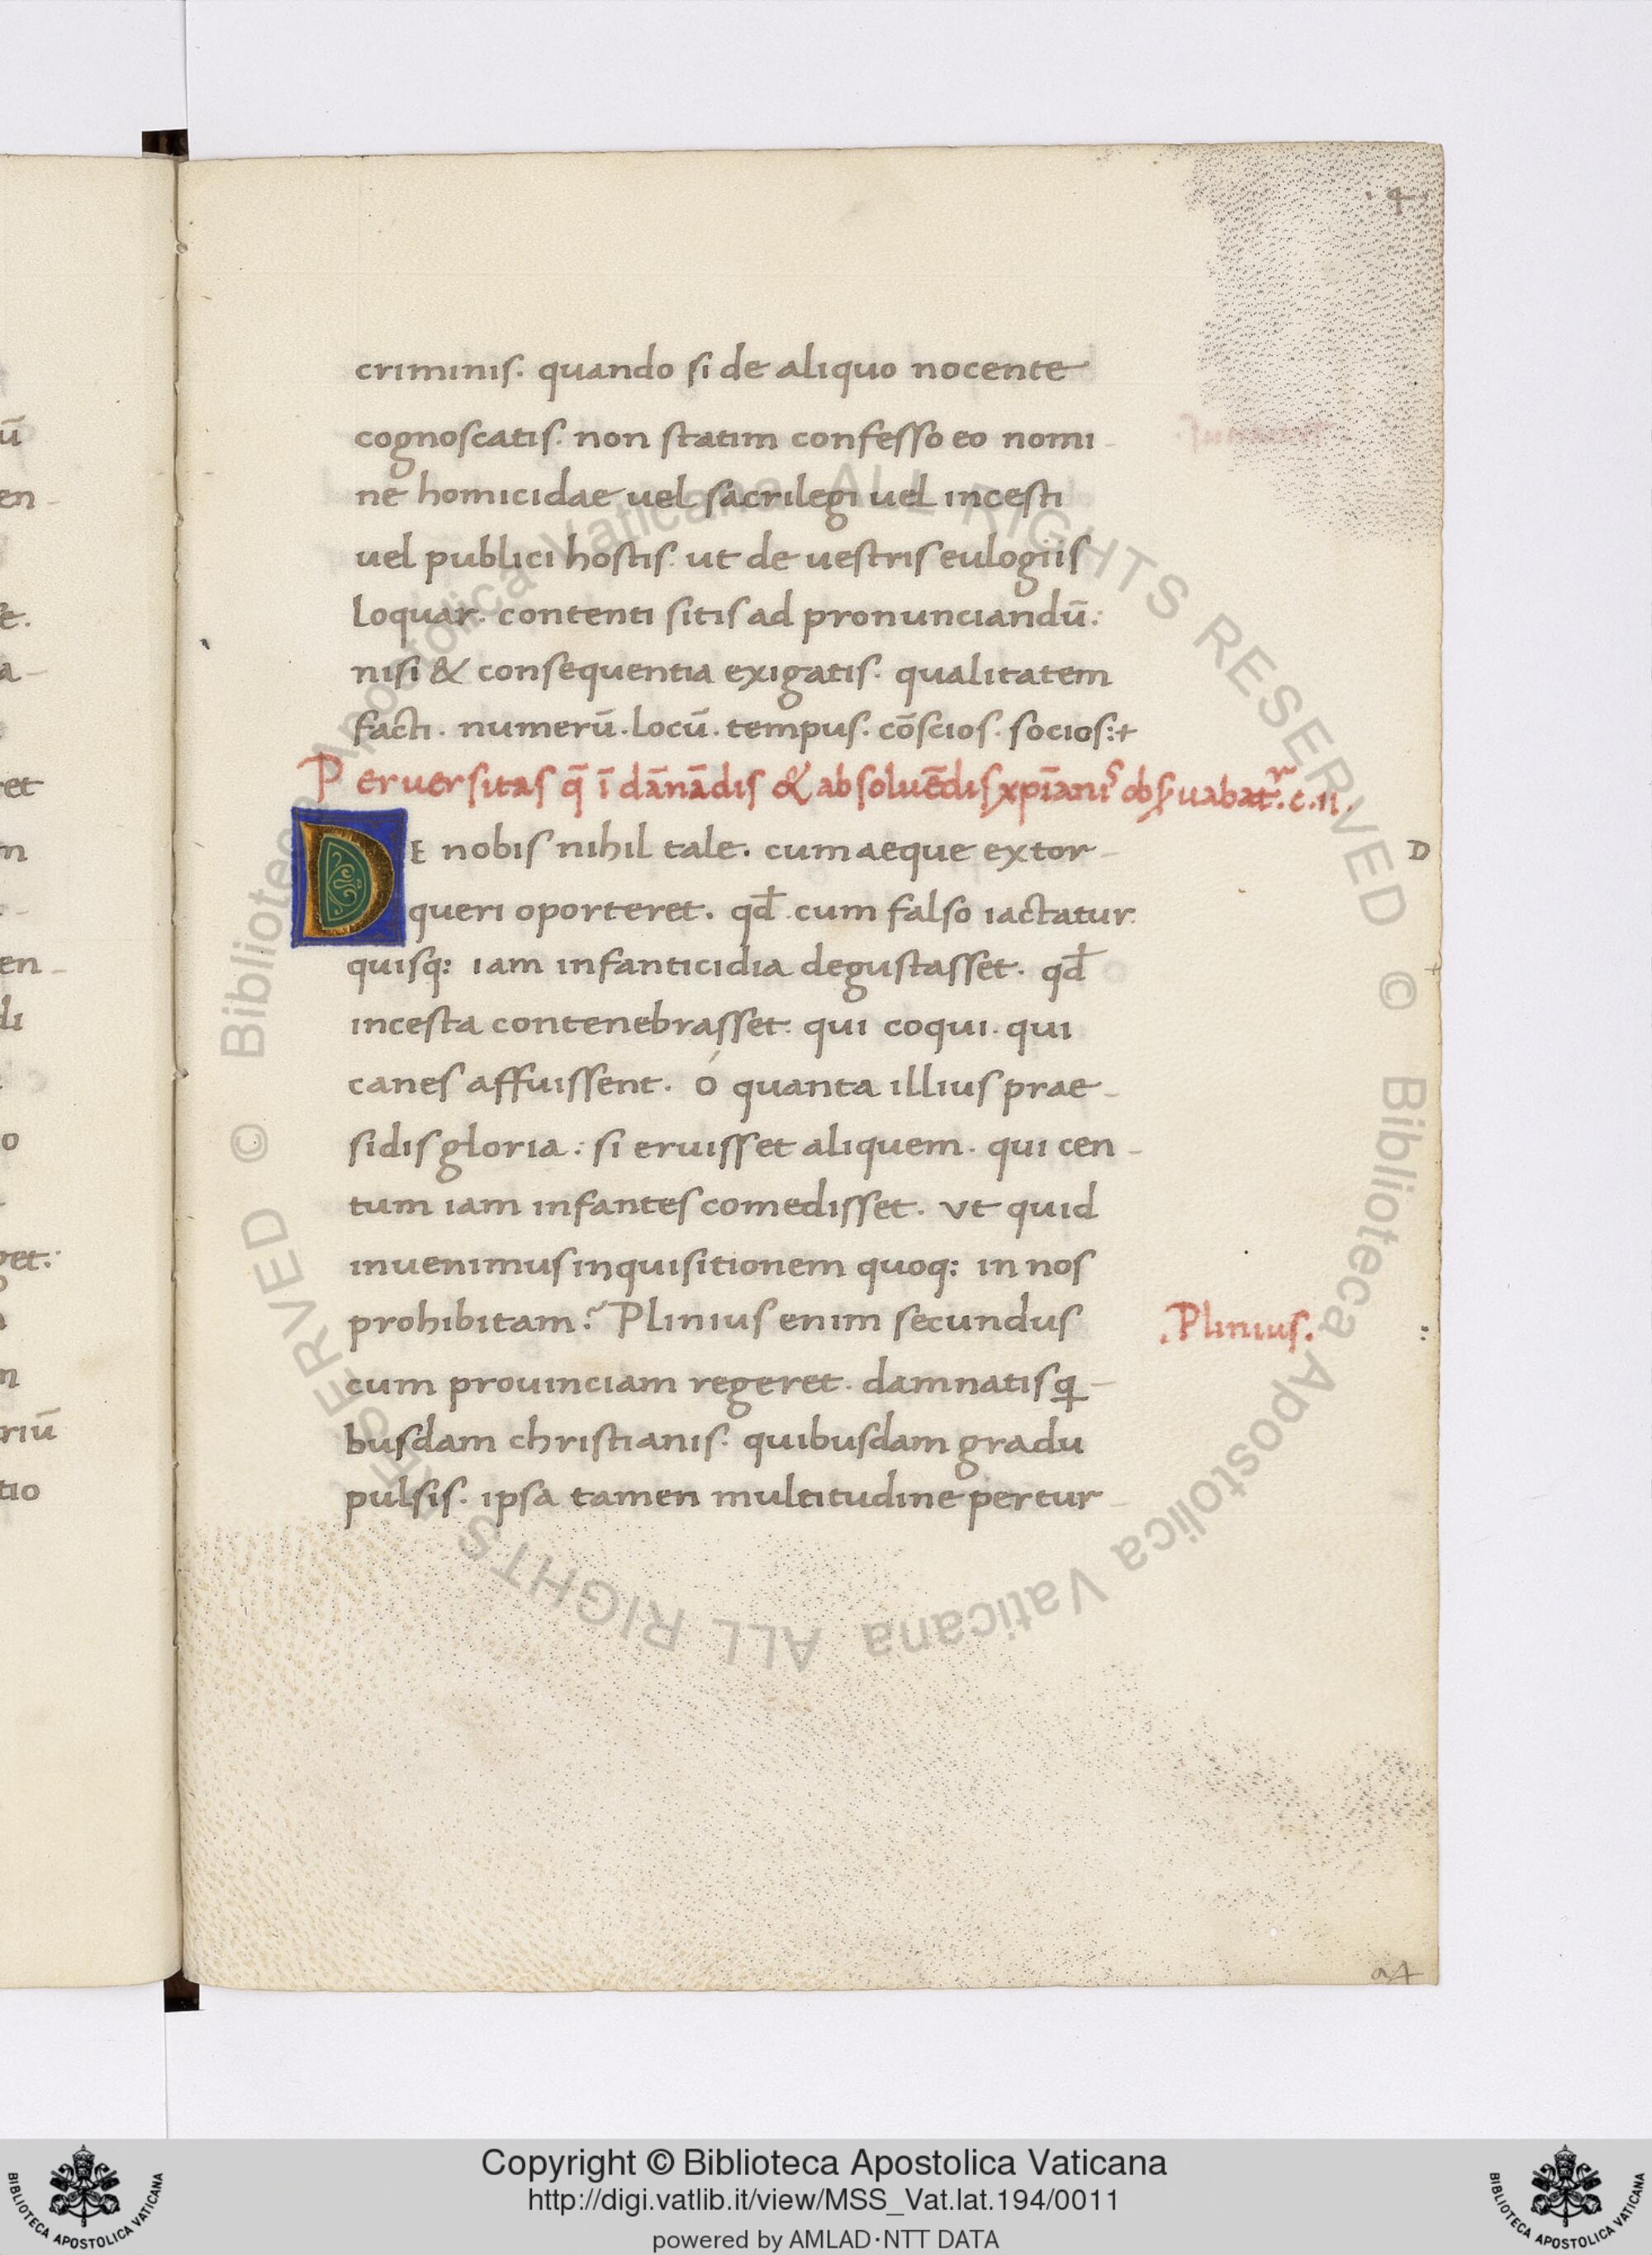 4
criminis. quando si de aliquo nocente
cognoscatis. non statim confesso eo nomi-
ne homicidae uel sacrilegi uel incesti
uel publici hostis. ut de uestris eulogiis
loquar. contenti sitis ad pronunciandū:
nisi & consequentia exigatis. qualitatem
facti. numerū. locū. tempus. cōscios. socios:+
Peruersitas q̄ ī dānādis & absoluēdis xp̄ianis obseruabatur. c. ii.
DE nobis nihil tale. cum aeque extor-
D
queri oporteret. qđ cum falso iactatur.
quisq: iam infanticidia degustasset. qđ
incesta contenebrasset. qui coqui. qui
canes affuissent. ó quanta illius prae-
sidis gloria: si eruisset aliquem. qui cen-
tum iam infantes comedisset. vt quid
inuenimus inquisitionem quoq: in nos
prohibitam? Plinius enim secundus
.Plinius.
cum prouinciam regeret. damnatis q-
busdam christianis. quibusdam gradu
pulsis. ipsa tamen multitudine pertur-
a4
ū
en-
e.
a-
ret
m
en-
di
o
get:
m
riū
tio
© Biblioteca Apostolica Vaticana ALL RIGHTS RESERVED © Biblioteca Apostolica Vaticana ALL RIGHTS RESERVED
Copyright © Biblioteca Apostolica Vaticana
http://digi.vatlib.it/view/MSS_Vat.lat.194/0011
powered by AMLAD·NTT DATA
BIBLIOTECA APOSTOLICA VATICANA
BIBLIOTECA APOSTOLICA VATICANA